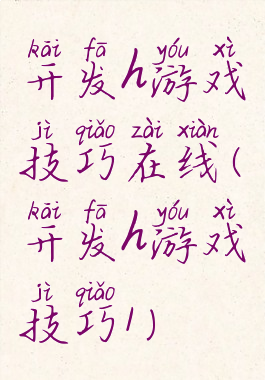 kāi fā yóu xì
开发h游戏
jì qiǎo zài xiàn
技巧在线(
kāi fā yóu xì
开发h游戏
jì qiǎo
技巧/)